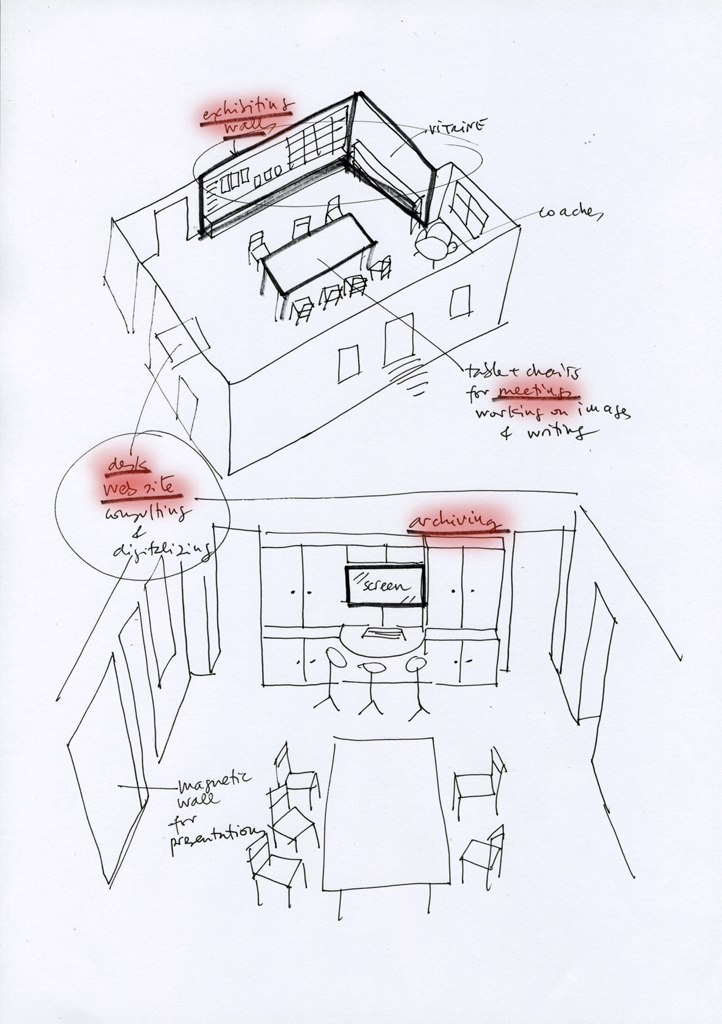 exhibiting
wall
VITRINE
coaches
table + chairs
for meetings
working on images
& writing
desk
web site
consulting
&
digitalizing
archiving
screen
magnetic
wall
for
presentations